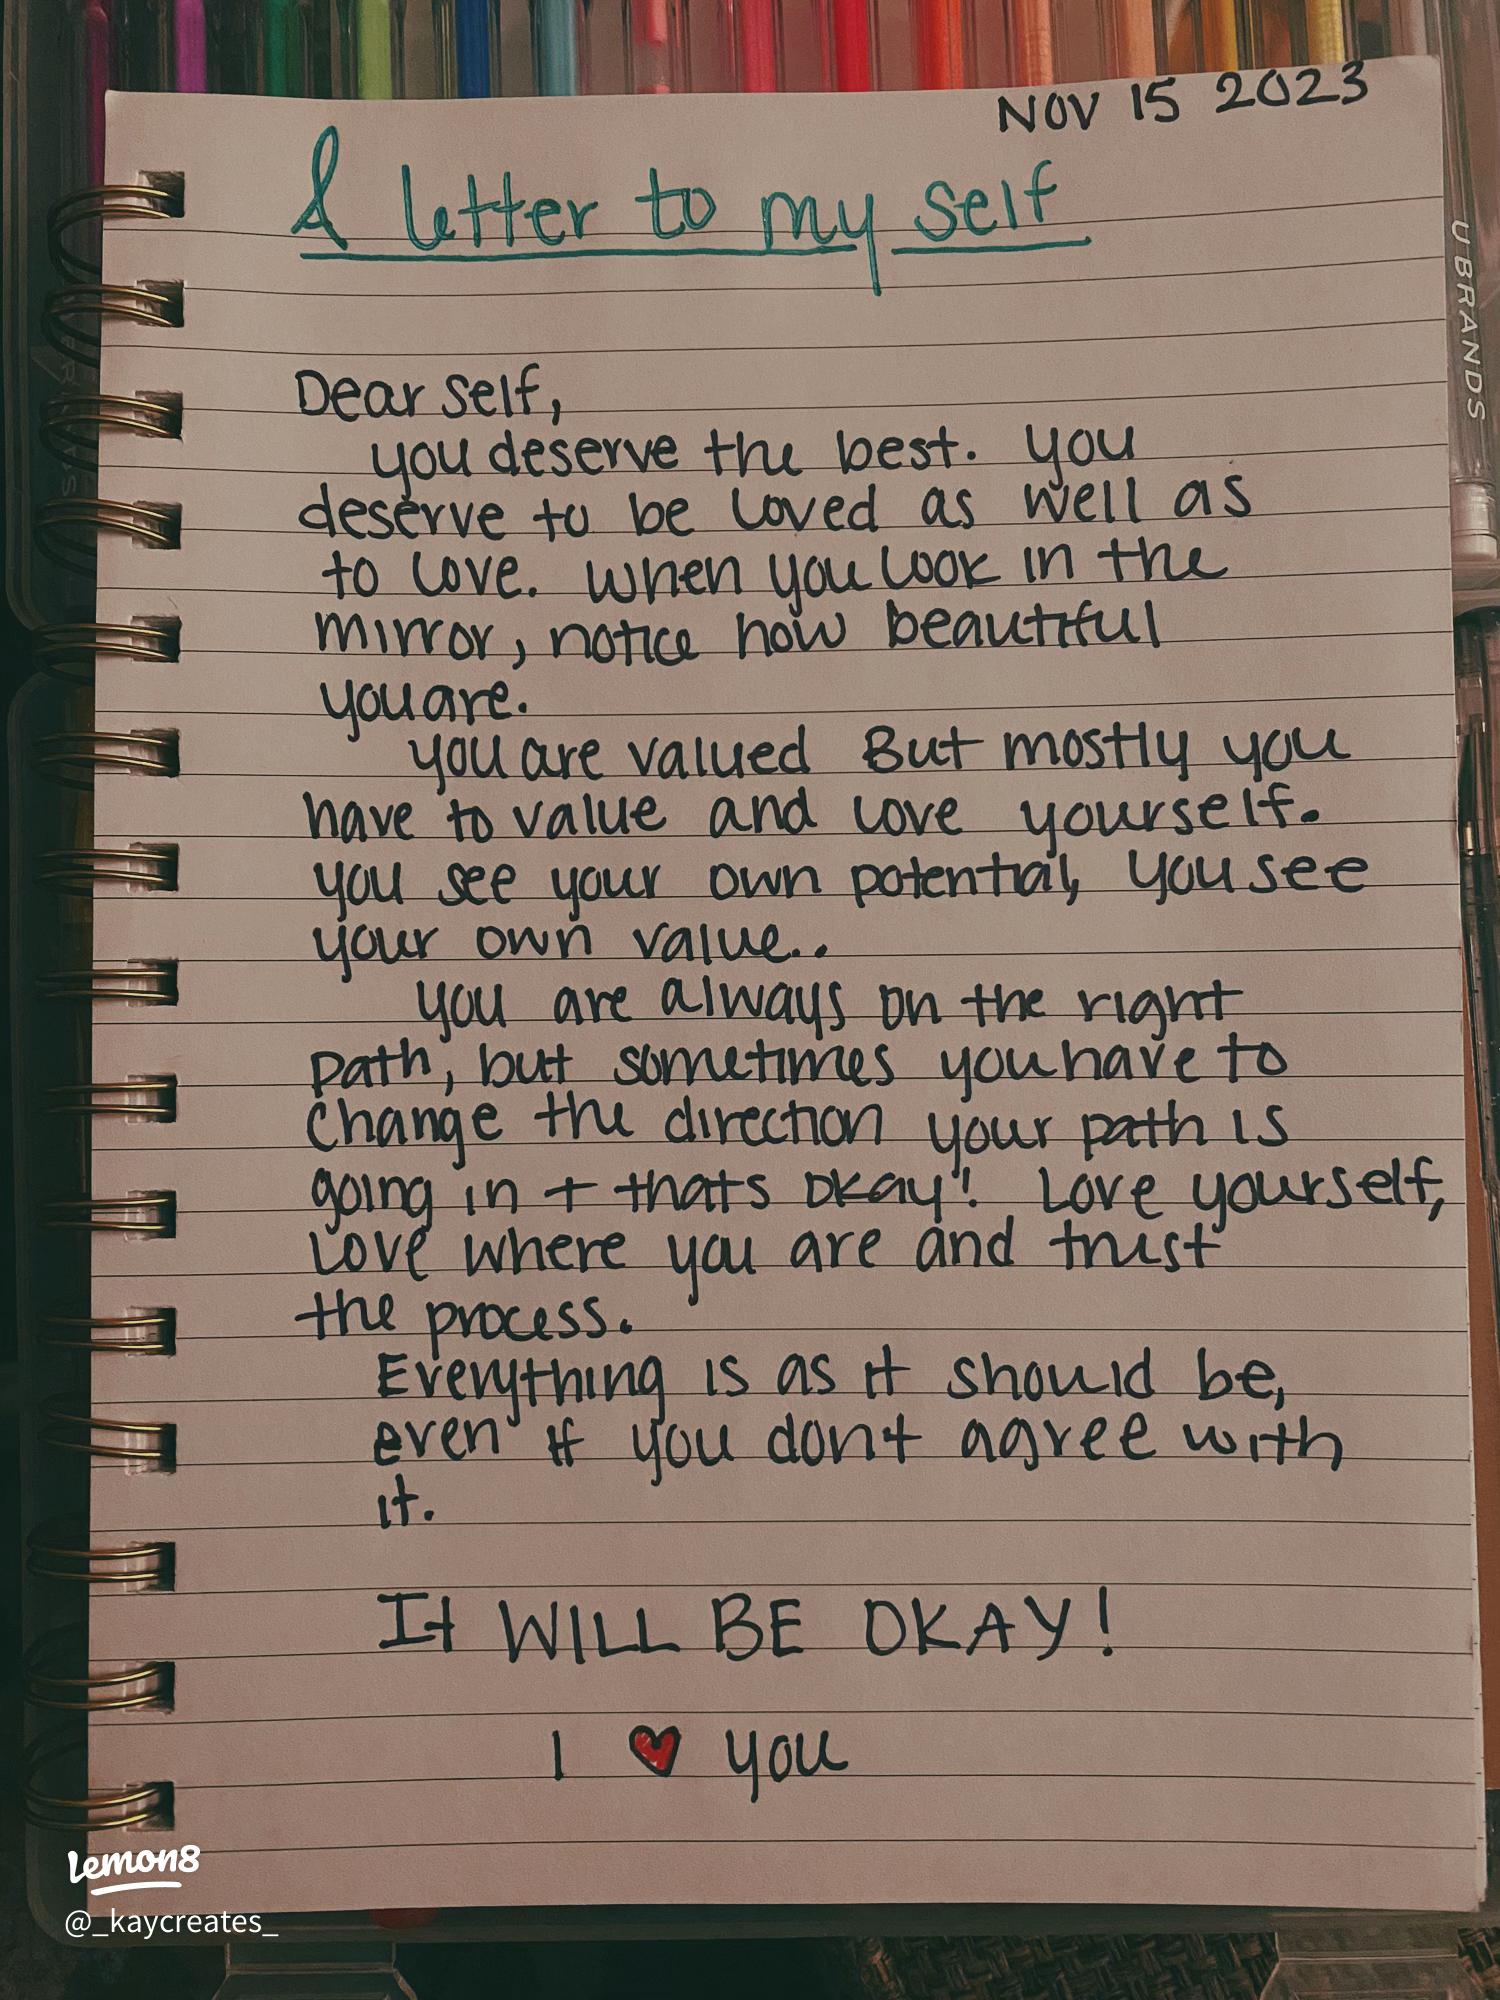 NOV 15 2023
A letter to my self
UBRANDS
Dear self,
you deserve the best. you
deserve to be loved as well as
to love. when you look in the
mirror, notice how beautiful
you are.
you are valued But mostly you
have to value and love yourself.
you see your own potential, you see
your own value..
you are always on the right
path, but sometimes you have to
change the direction your path is
going in + thats okay! Love yourself,
love where you are and trust
the process.
Everything is as it should be,
even if you dont agree with
it.
It WILL BE OKAY!
I ❤ you
Lemon8
@_kaycreates_